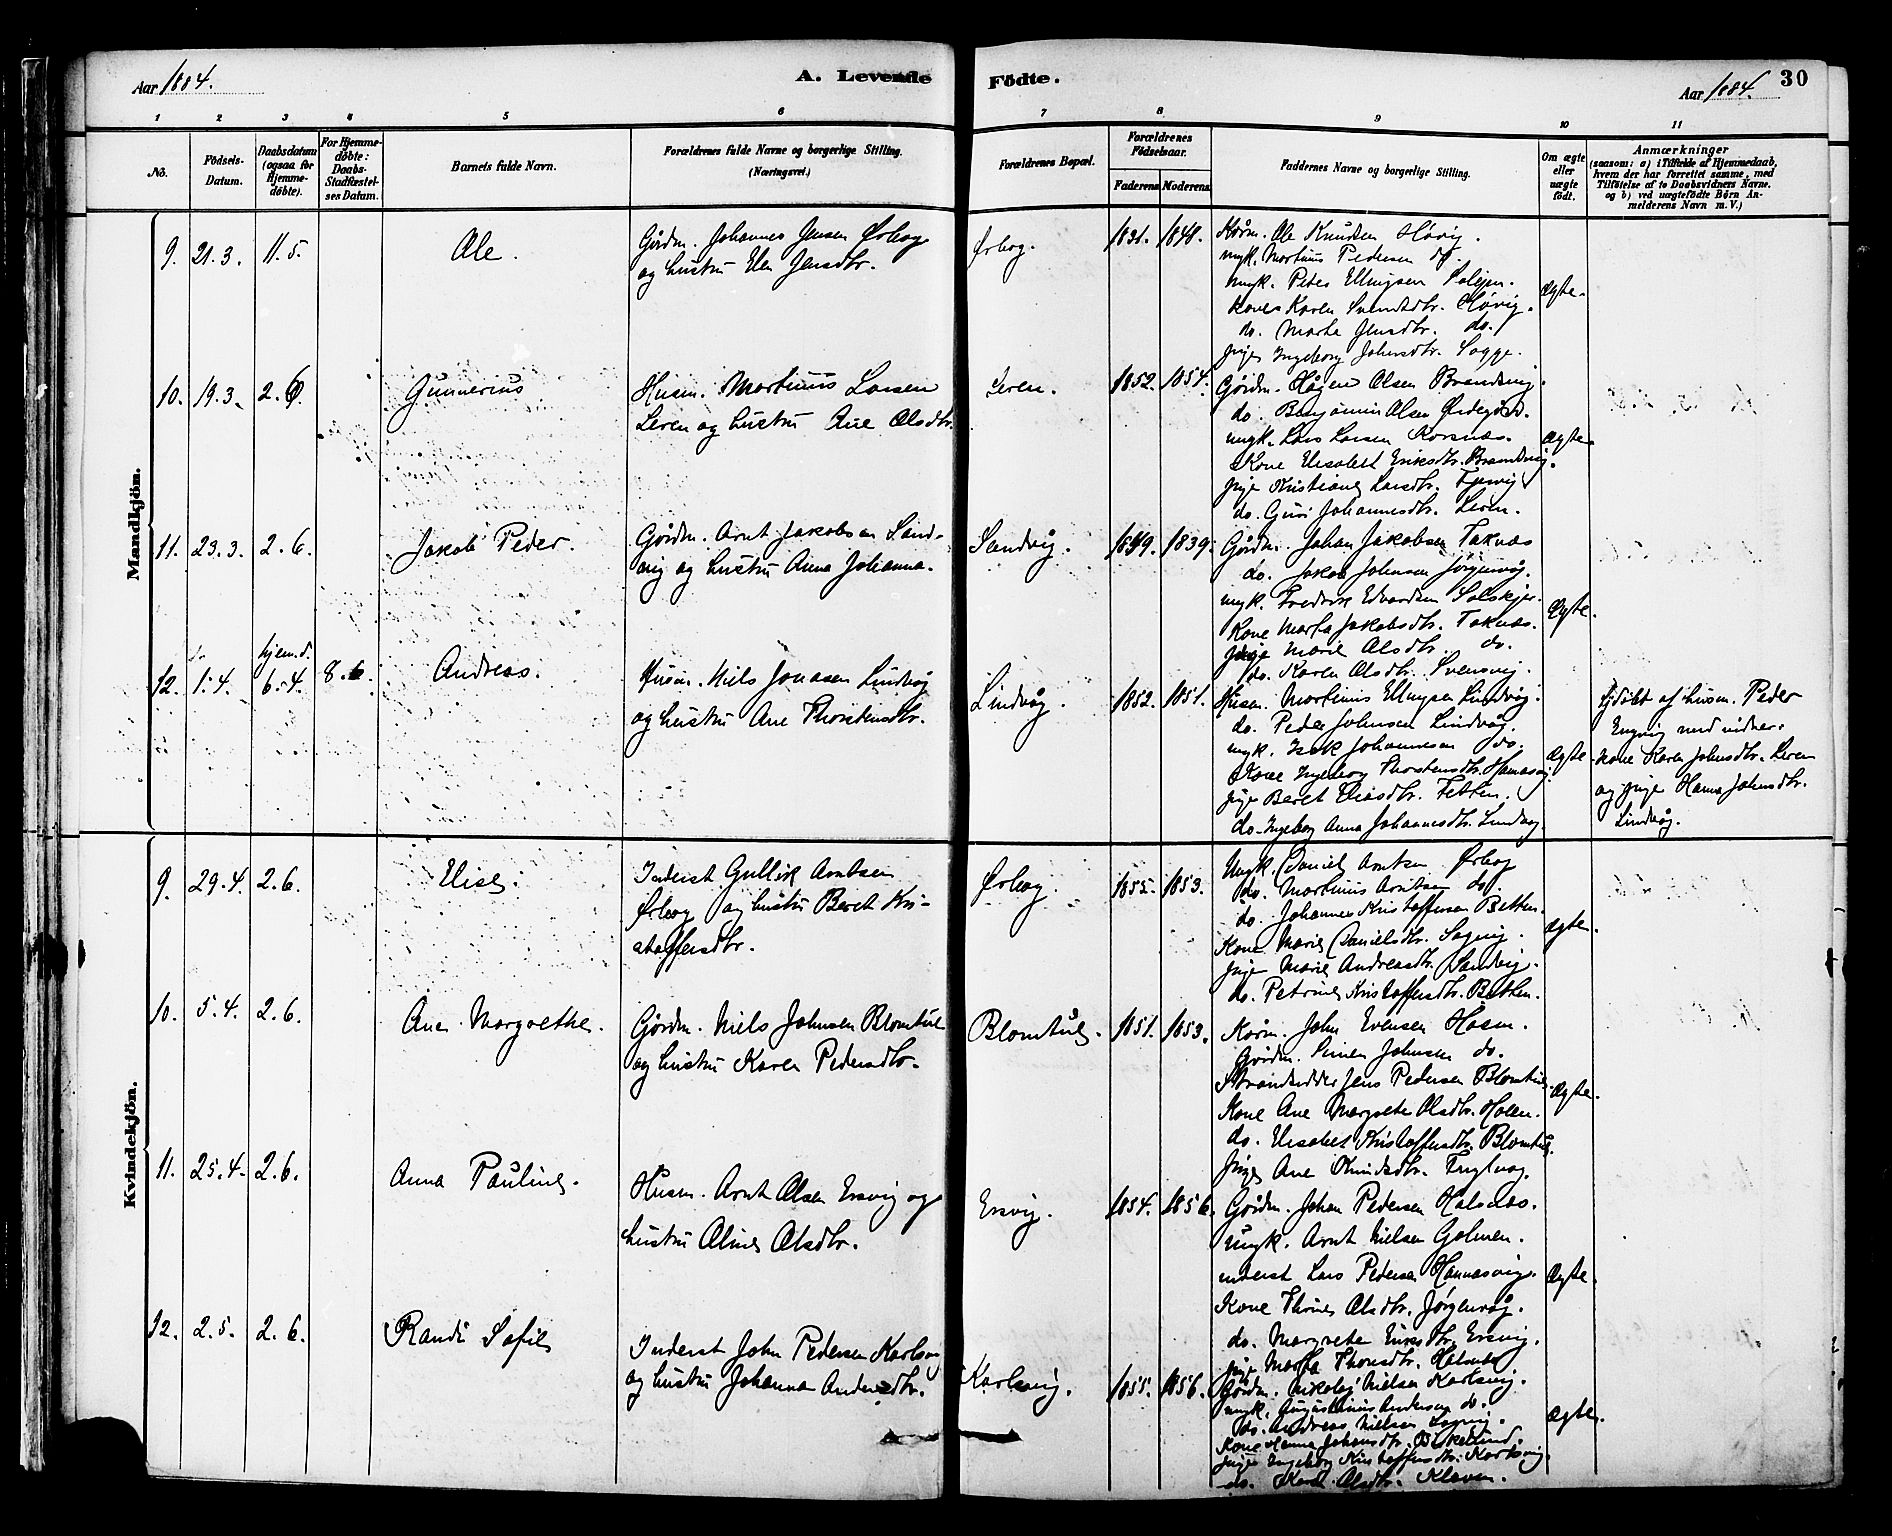 Aar 1884.
A. Levende
Födte.
Aar 1884.
30
1 2 3 4 5 6 7 8 9 10 11
No.
Födsels-Datum.
Daabsdatum (ogsaa for Hjemmedöbte).
For Hjemmedöbte: Daabs-Stadfæstelses Datum.
Barnets fulde Navn.
Forældrenes fulde Navne og borgerlige Stilling.
(Næringsvei.)
Forældrenes Bopæl.
Forældrenes Födselsaar.
Faderens Moderens
Faddernes Navne og borgerlige Stilling.
Om ægte eller uægte födt.
Anmærkninger
(saasom: a) i Tilfælde af Hjemmedaab,
hvem der har forrettet samme, med
Tilföielse af to Daabsvidners Navne.
og b) ved uægtefödte Börn An-
melderens Navn m. V.)
Mandkjön.
9. 21.3. 11.5.
Ole.
Gårdm. Johannes Jensen Ørbog
og hustru Elen Jensdtr.
Ørbog.
1831. 1848.
Kårm. Ole Knudsen Høvig.
ungk. Martinus Pedersen do.
ungk. Peter Ellingsen
Kone Karen Svendsdtr. Høvig.
do. Marta Jensdtr. do.
pige Ingeborg Johnsdtr. Sogge.
Ægte.
10. 19.3. 2.6.
Gunnerius
Husm. Martinus Larsen
Leren og hustru Ane Olsdtr.
Leren.
1852. 1854.
Gårdm. Hågen Olsen Brandsvig.
do. Benjamin Olsen Ødegård.
ungk. Lars Larsen Korsnæs.
Kone Elisabet Eriksdtr. Brandsvig.
pige Kristiane Larsdtr.
do. Guri Johannesdtr. Leren.
Ægte
11. 23.3. 2.6.
Jakob Peder.
Gårdm. Arnt Jakobsen Sand-
vig og hustru Anna Johanna.
Sandvig.
1849. 1839.
Gårdm. Johan Jakobsen Taknæs
do. Jakob Johnsen Jørgenvåg.
ungk. Fredrik Edvardsen Solskjer.
Kone Marta Jakobsdtr. Taknæs.
pige Marie Olsdtr. do.
do. Karen Olsdtr. Svensvig.
Ægte.
12. 1.4. hjem.d. 6.4. 8.6.
Andreas.
Husm. Niels Jonasen Lindvåg
og hustru Ane Thorstensdtr.
Lindvåg.
1852. 1851.
Husm. Martinus Ellingsen Lindvåg.
do. Peder Johnsen Lindvåg.
ungk. Isak Johannesen do.
Kone Ingeborg Thorstensdtr. Hamasvig.
pige Beret Eliasdtr. Fætten.
do. Ingeborg Anna Johannesdtr. Lindvåg.
Ægte
Hjdøbt af husm. Peder
Engvig med vidner:
kone Karen Johnsdtr. Leren
og pige Hanna Johnsdtr.
Lindvåg.
Kvindekjön.
9. 29.4. 2.6.
Elise.
Inderst Gullik Arntsen
Ørbog og hustru Beret Kri-
stoffersdtr.
Ørbog.
1855. 1853.
Ungk. Daniel Arntsen Ørbog
do. Martinus Arntsen do.
do. Johannes Kristoffersen Betten.
Kone Marie Danielsdtr. Sagvig.
pige Marie Andreasdtr. Sandvig.
do. Petrine Kristoffersdtr. Betten.
Ægte.
10. 5.4. 2.6.
Ane Margrethe.
Gårdm. Niels Johnsen Blomtuve
og hustru Karen Pedersdtr.
Blomtuve.
1851. 1853.
Kårm. John Evensen Hosen.
Gårdm. Simen Johnsen do.
Strandsidder Jens Pedersen Blomtuve.
Kone Ane Margrete Olsdtr. Holen.
do. Elisabet Kristoffersdtr. Blomtuv.
Pige Ane Knudsdtr. Fuglvåg.
Ægte.
11. 25.4. 2.6.
Anna Pauline.
Husm. Arnt Olsen Ersvig og
hustru Oline Olsdtr.
Ersvig.
1854. 1856.
Gårdm. Johan Pedersen Halsnæs.
Ungk. Arnt Nielsen Golmen.
inderst Lars Pedersen Hamnæsvig.
Kone Thrine Olsdtr. Jørgenvåg.
do. Margrete Eriksdtr. Ersvig.
pige Marta Thomsdtr. Halsnæs.
Ægte.
12. 2.5. 2.6.
Randi Sofie
Inderst John Pedersen Karlsvig
og hustru Johanna Andersdtr.
Karlsvig.
1855. 1856.
Gårdm. Nikolaj Nielsen Karlsvig.
ungk. Augustinus Andersen do.
do. Andreas Nielsen Sagvig.
Kone Hanna Johansdtr. Birkelund.
pige Ingeborg Kristoffersdtr. Karlsvig.
do. Karen Olsdtr. Kleven.
Ægte.